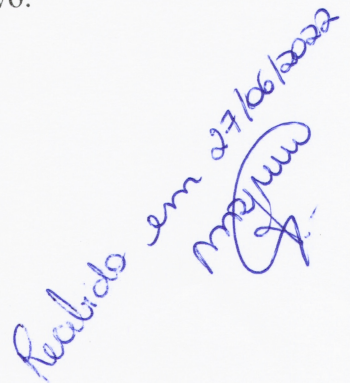 vo.
Recebido em 27/06/2022